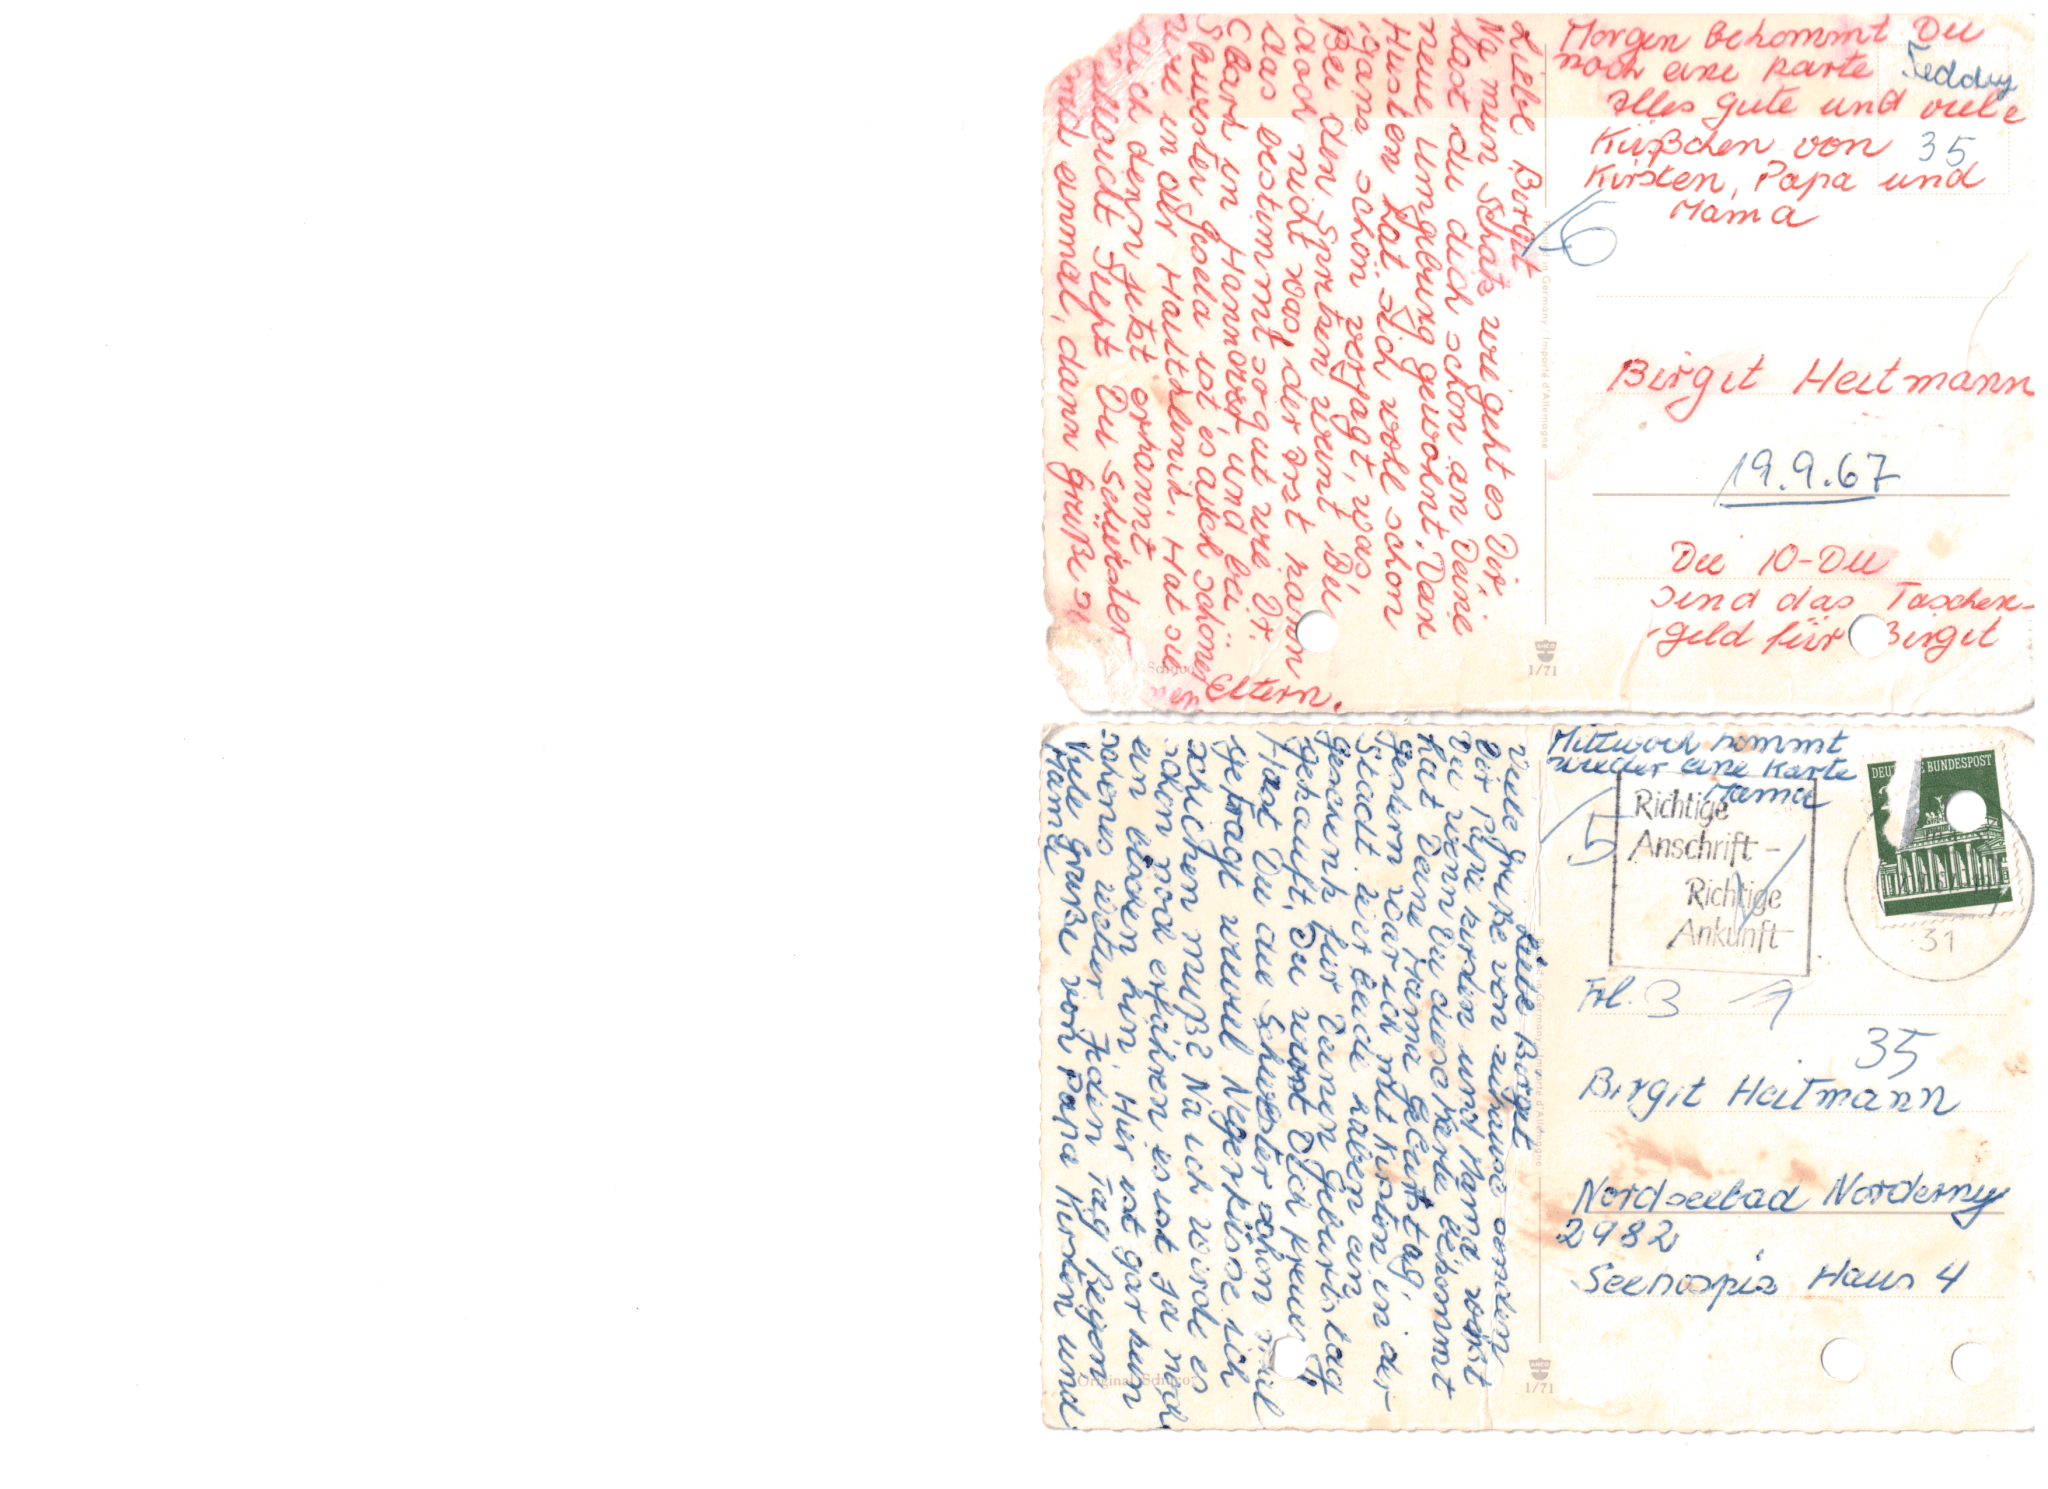 Liebe Birgit
Na mein Schatz wie geht es Dir,
hast du dich schon an Deine
neue umgebung gewöhnt. Dein
Husten hat sich wohl schon
ganz schön verjagt, was
Bei den Spritzen weint Du
doch nicht was, der Arzt kann
das bestimmt so gut wie Dr.
Clark in Hannover, und bei
Schwester Gisela ist es auch schöner
wie in der Haltklinik. Hat sie
Dich denn jetzt erkannt
vielleicht fliept Du Schwester
mich einmal, dann grüße
Eltern.
Morgen bekommt Du
noch eine karte
Alles gute und viele
Küßchen von
Kirsten, Papa und
Mama
Teddy
35
6
Printed in Germany · Importé d'Allemagne
Birgit Heitmann
19.9.67
Die 10-DM
sind das Taschen-
geld für Birgit
ANCO
1/71
Schuco
Liebe Birgit
Viele grüße von zuhause senden
Dir Papa kirsten und Mama, weist
Du wenn Du diese karte bekommt
hat Deine Mama Geburtstag
gestern war ich mit Kirsten in der
Stadt. wir beide haben ein
geschenk für Deinen Geburtstag
gekauft. Du wirst Dich freuen
Hast Du die Schwester schon mal
gefragt wieviel Negerküsse ich
schicken muß? Na ich werde es
schon noch erfahren es ist ja noch
ein bischen hin. Hier ist gar kein
schönes wetter Jeden Tag Regen
Viele Grüße von Papa Kirsten und
Mama
Mittwoch kommt
wieder eine Karte
Mama
5
Richtige
Anschrift –
Richtige
Ankunft
DEUTSCHE BUNDESPOST
31
Frl. 3 1
35
Birgit Heitmann
Nordseebad Norderny
2982
Seehospiz Haus 4
Printed in Germany · Importé d'Allemagne
ANCO
1/71
Original Schuco